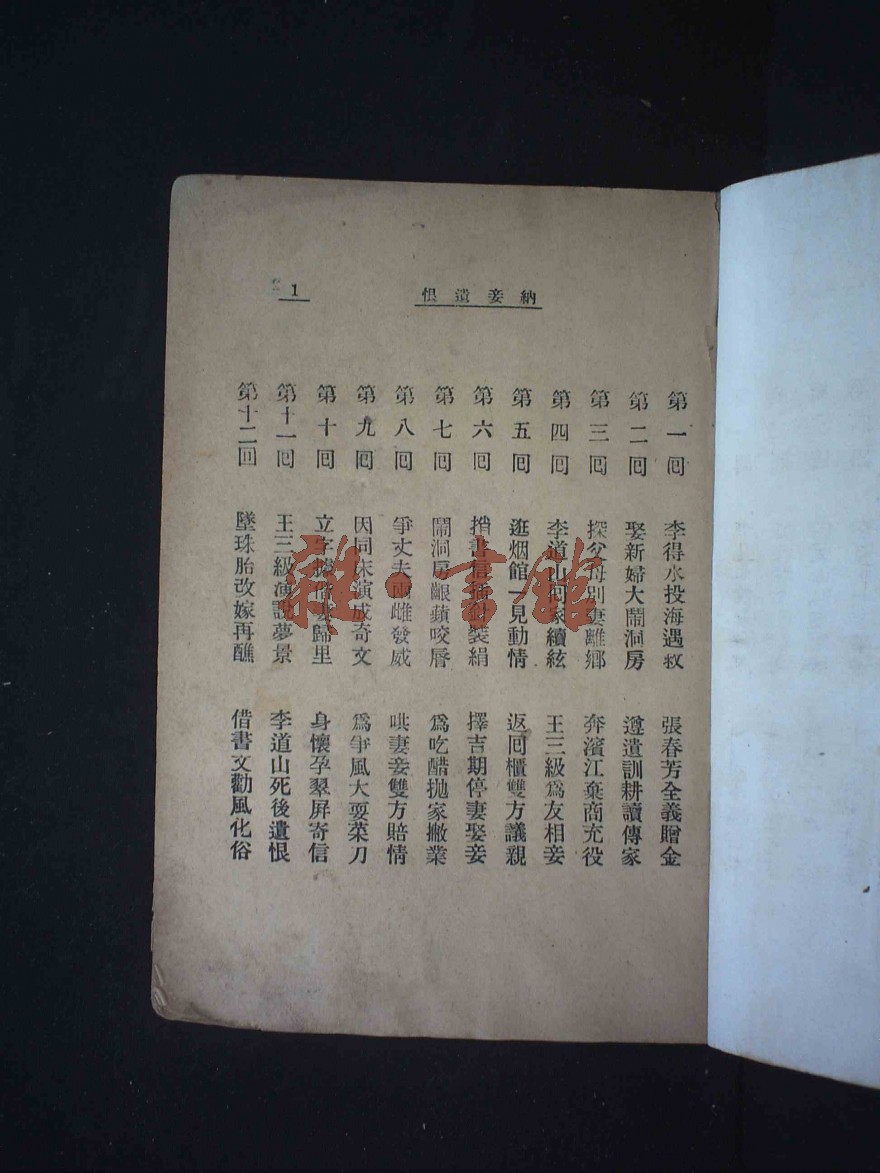 納妾遺恨
1
第一回 李得水投海遇救 張春芳全義贈金
第二回 娶新婦大鬧洞房 遵遺訓耕讀傳家
第三回 探父母別妻離鄉 奔濱江棄商充役
第四回 李道山何家續絃 王三級爲友相妾
第五回 逛烟館一見動情 返回櫃雙方議親
第六回 捎書信 裝絹 擇吉期停妻娶妾
第七回 鬧洞房齦蘋咬唇 爲吃醋抛家撇業
第八回 爭丈夫兩雌發威 哄妻妾雙方賠情
第九回 因同床演成奇文 爲爭風大耍菜刀
第十回 立字 歸里 身懷孕翠屏寄信
第十一回 王三級演說夢景 李道山死後遺恨
第十二回 墜珠胎改嫁再醮 借書文勸風化俗
雜·書館